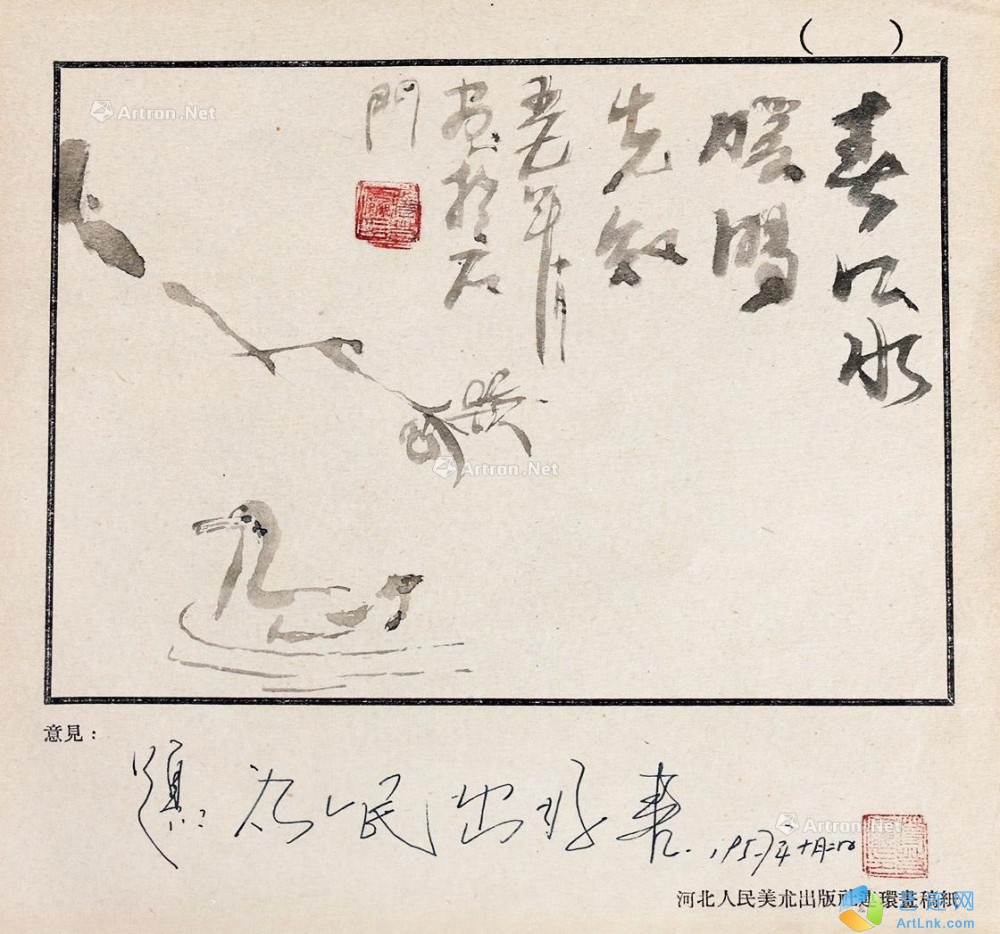 ( )
春江水
暖鴨
先知
五七年十月
画於石
門
Artron.Net
Artron.Net
意見：
題：为人民出好書.
1957年十月二日
Artron.Net
河北人民美朮出版社連環畫稿紙
ArtLnk.com